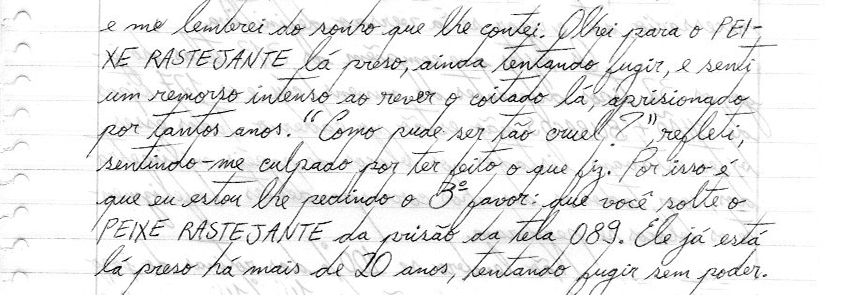 e me lembrei do sonho que lhe contei. Olhei para o PEI-
XE RASTEJANTE lá preso, ainda tentando fugir, e senti
um remorso intenso ao rever o coitado lá, aprisionado
por tantos anos. "Como pude ser tão cruel?" refleti,
sentindo-me culpado por ter feito o que fiz. Por isso é
que eu estou lhe pedindo o 3º favor: que você solte o
PEIXE RASTEJANTE da prisão da tela 089. Ele já está
lá preso há mais de 20 anos, tentando fugir sem poder.